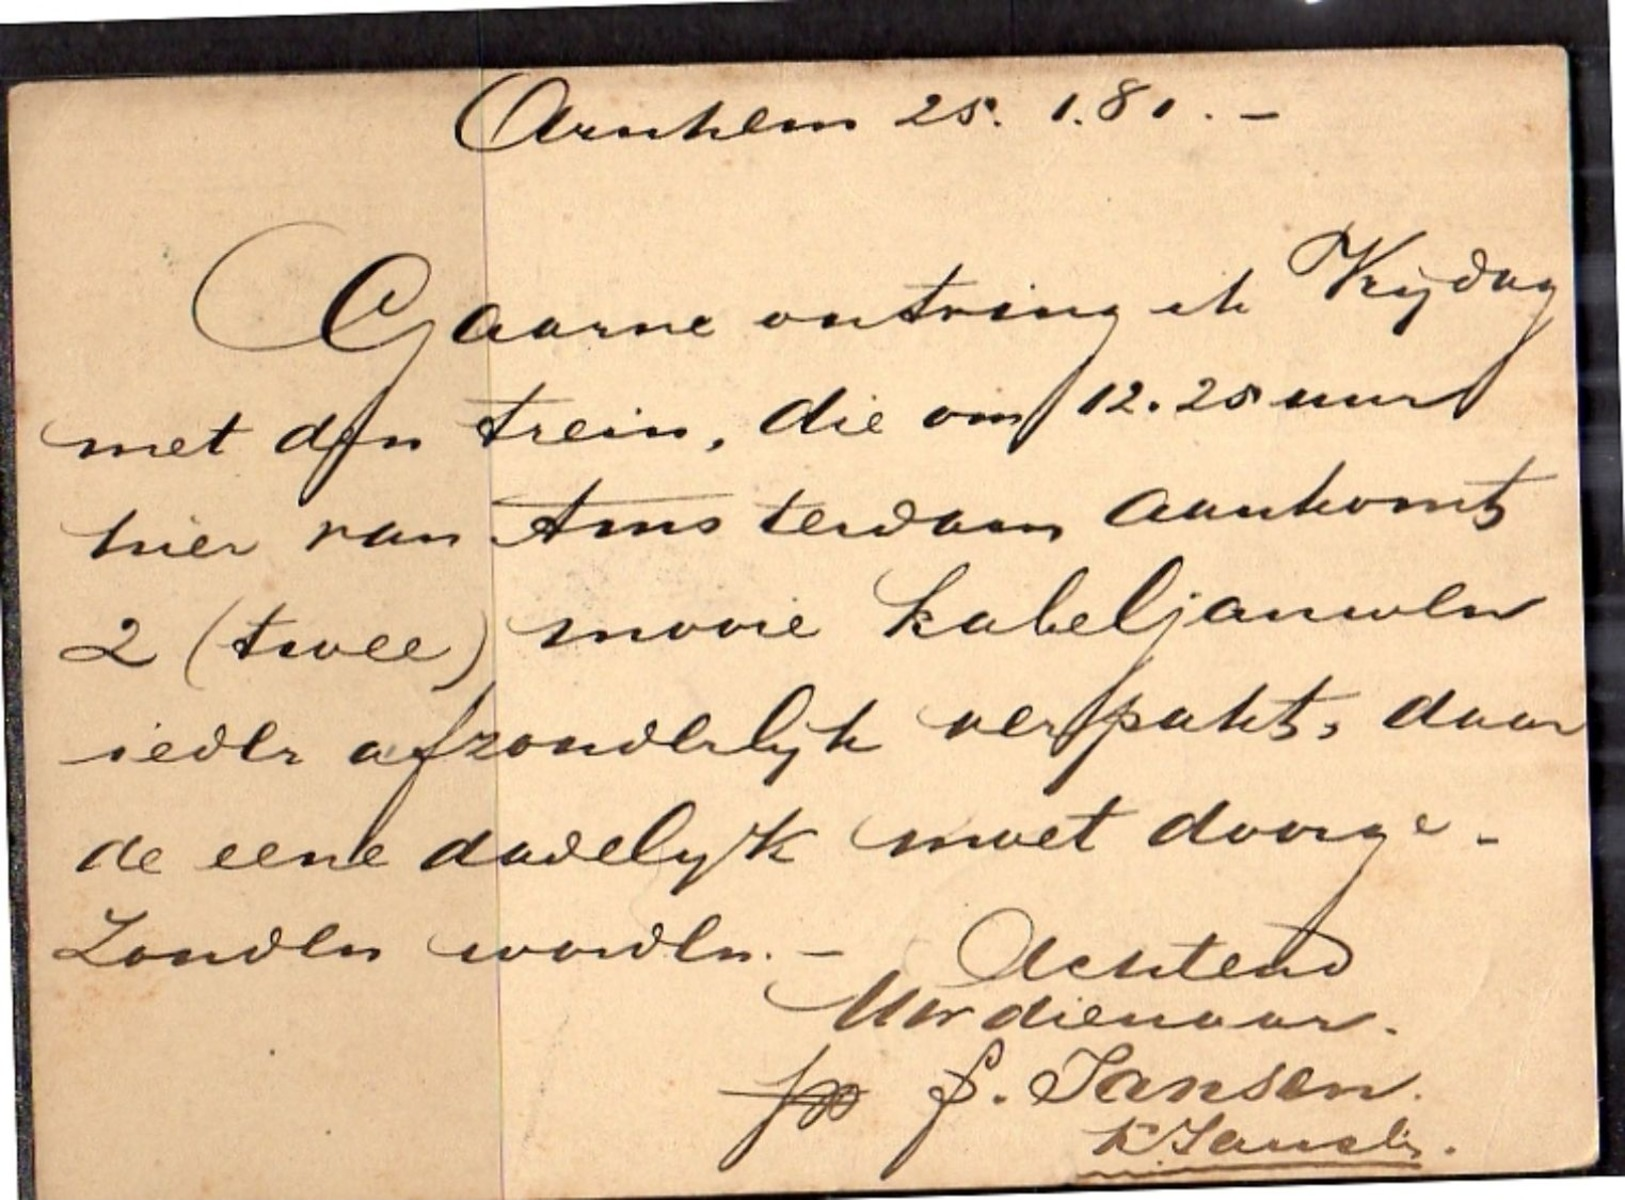 Arnhem 25. 1. 81. –
Gaarne ontving ik Vrijdag
met den trein, die om 12.25 uur
hier van Amsterdam aankomt
2 (twee) mooie kabeljauwen
ieder afzonderlijk verpakt, daar
de eene dadelijk moet doorge-
zonden worden. –
Achtend
Uw dienaar.
pp J. Jansen.